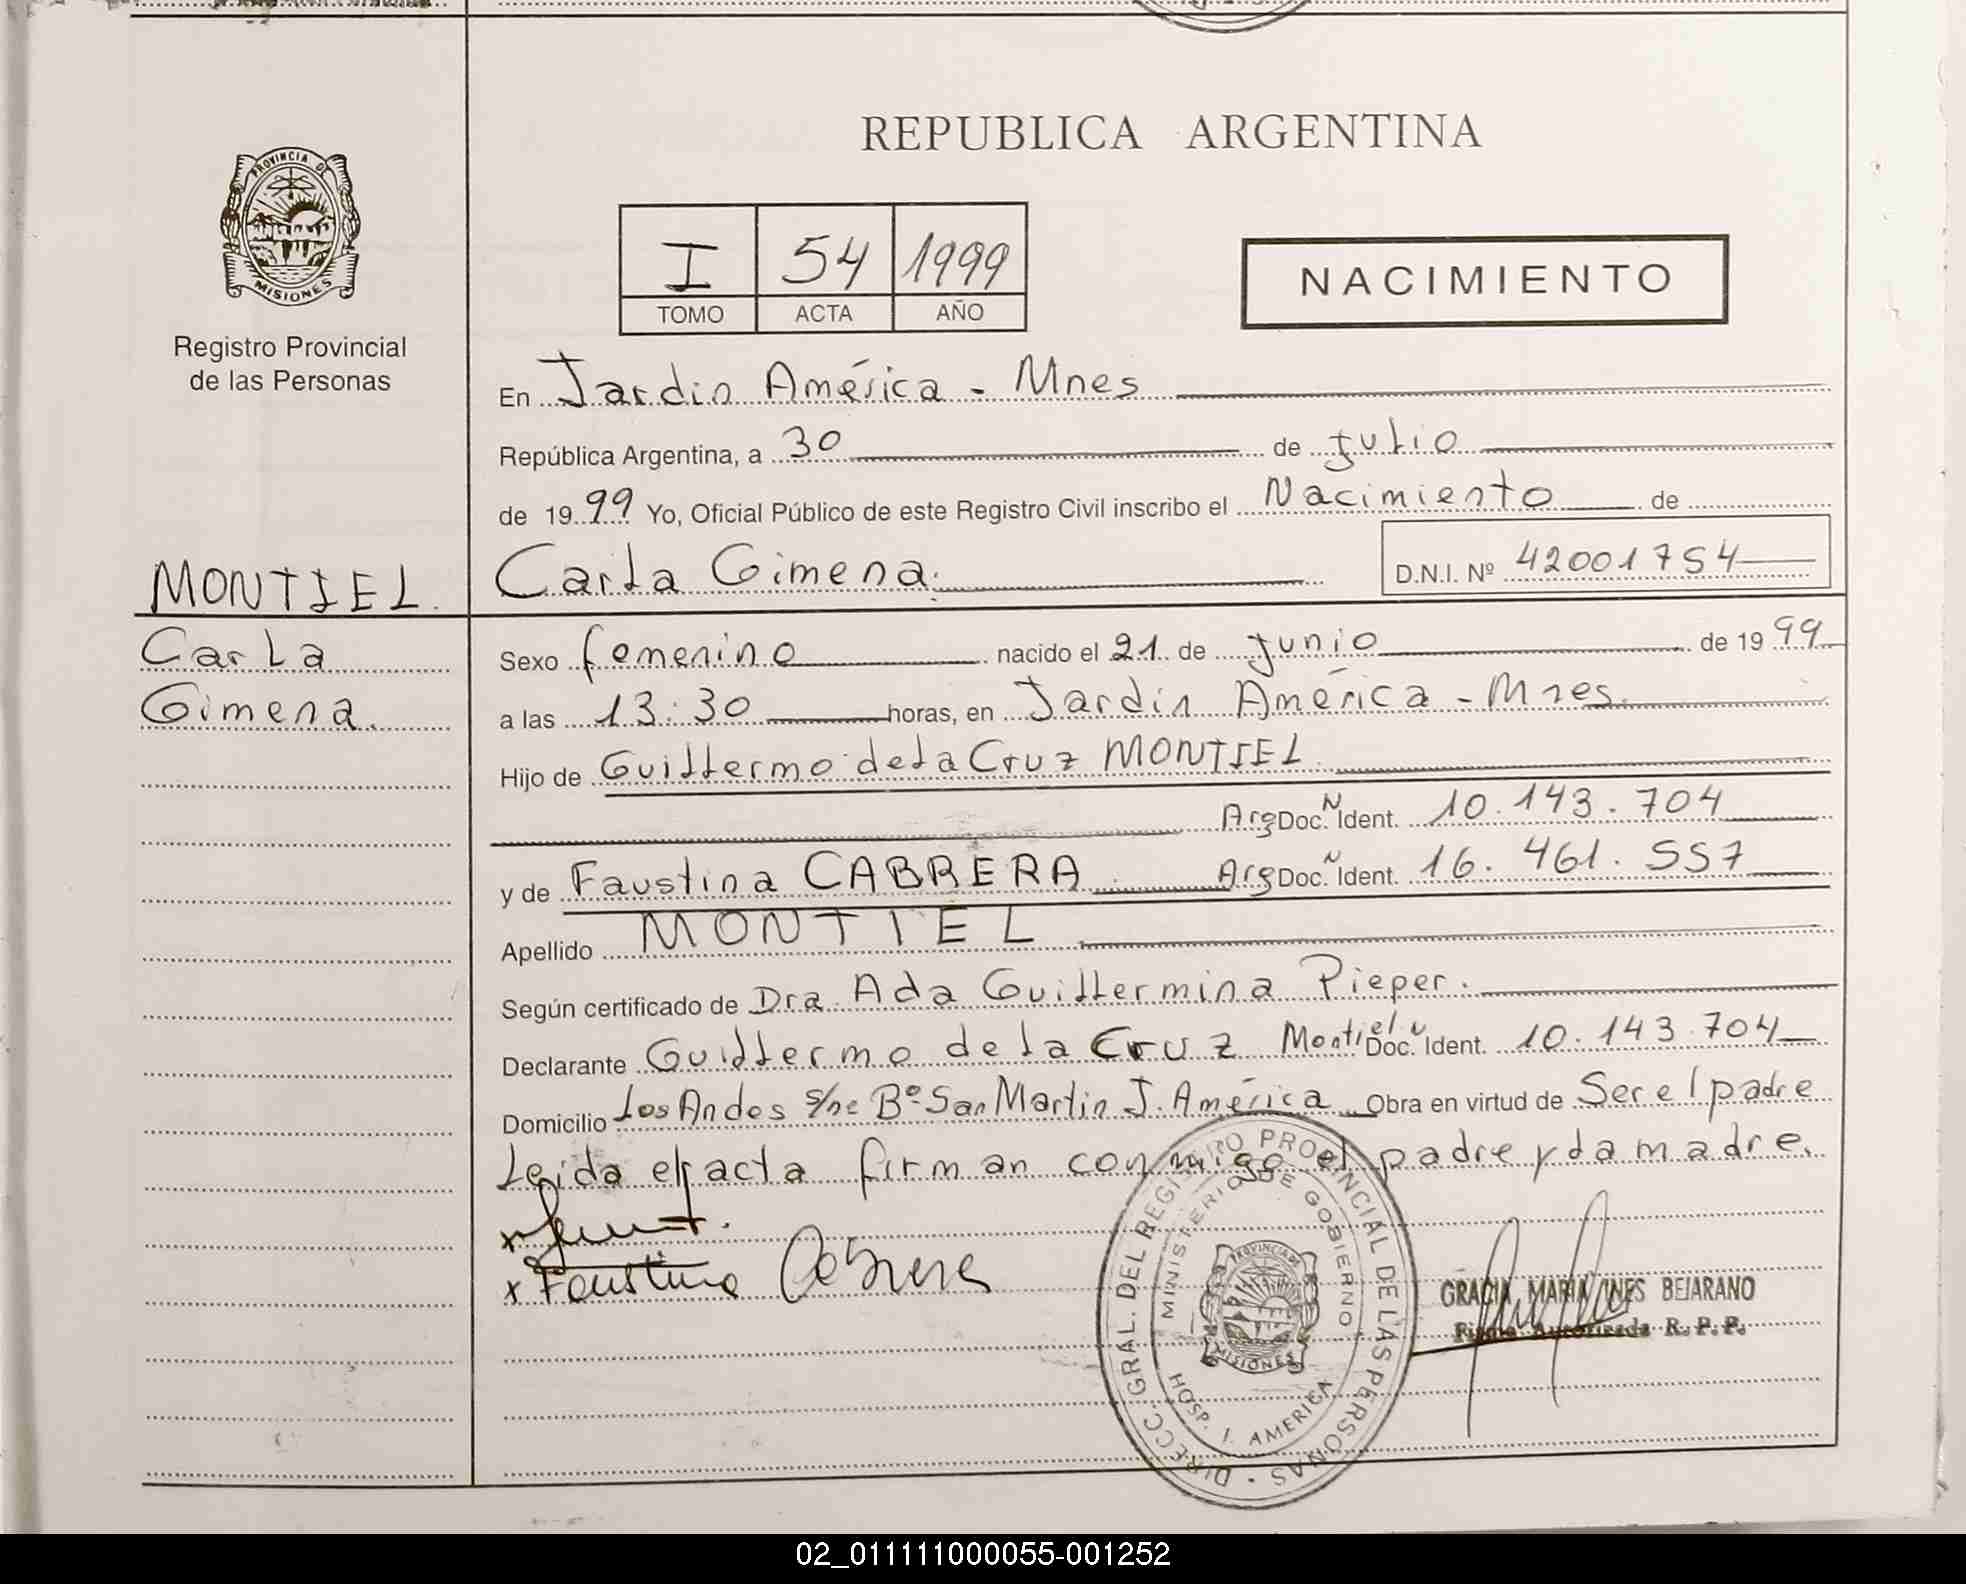 REPUBLICA ARGENTINA
PROVINCIA DE
MISIONES
Registro Provincial
de las Personas
I 54 1999
TOMO ACTA AÑO
NACIMIENTO
En Jardin América - Mnes
República Argentina, a 30 de julio
de 1999 Yo, Oficial Público de este Registro Civil inscribo el Nacimiento de
Carla Gimena. D.N.I. Nº 42001754
MONTIEL
Carla
Gimena.
Sexo femenino nacido el 21 de junio de 1999
a las 13:30 horas, en Jardín América - Mnes.
Hijo de Guillermo de la Cruz MONTIEL
Arg Doc. N Ident. 10.143.704
y de Faustina CABRERA Arg Doc. N Ident. 16.461.557
Apellido MONTIEL
Según certificado de Dra. Ada Guillermina Pieper.
Declarante Guillermo de la Cruz Montiel Doc. N Ident. 10.143.704
Domicilio Los Andes s/nº Bº San Martin J. América Obra en virtud de Ser el padre
Leida el acta firman conmigo el padre y la madre.
x Faustina Cabrera
DIRECC. GRAL. DEL REGISTRO PROVINCIAL DE LAS PERSONAS
MINISTERIO DE GOBIERNO
PROVINCIA DE
MISIONES
HOSP. J. AMERICA
GRACIA MARIA INES BEJARANO
Firma Autorizada R. P. P.
02_011111000055-001252